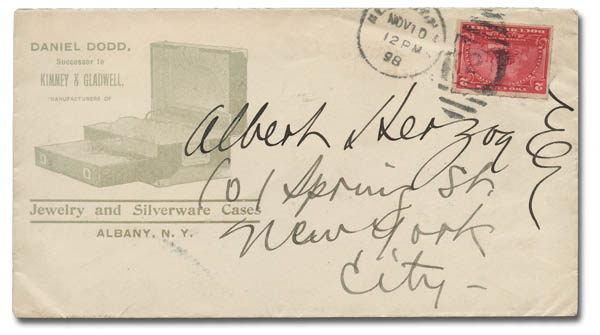 DANIEL DODD,
Successor to
KIMNEY & GLADWELL,
MANUFACTURERS OF
Jewelry and Silverware Cases
ALBANY, N. Y.
NOV 10
12 PM
98
2 2
Albert Herzog Esq
Spring St.
New York
City-